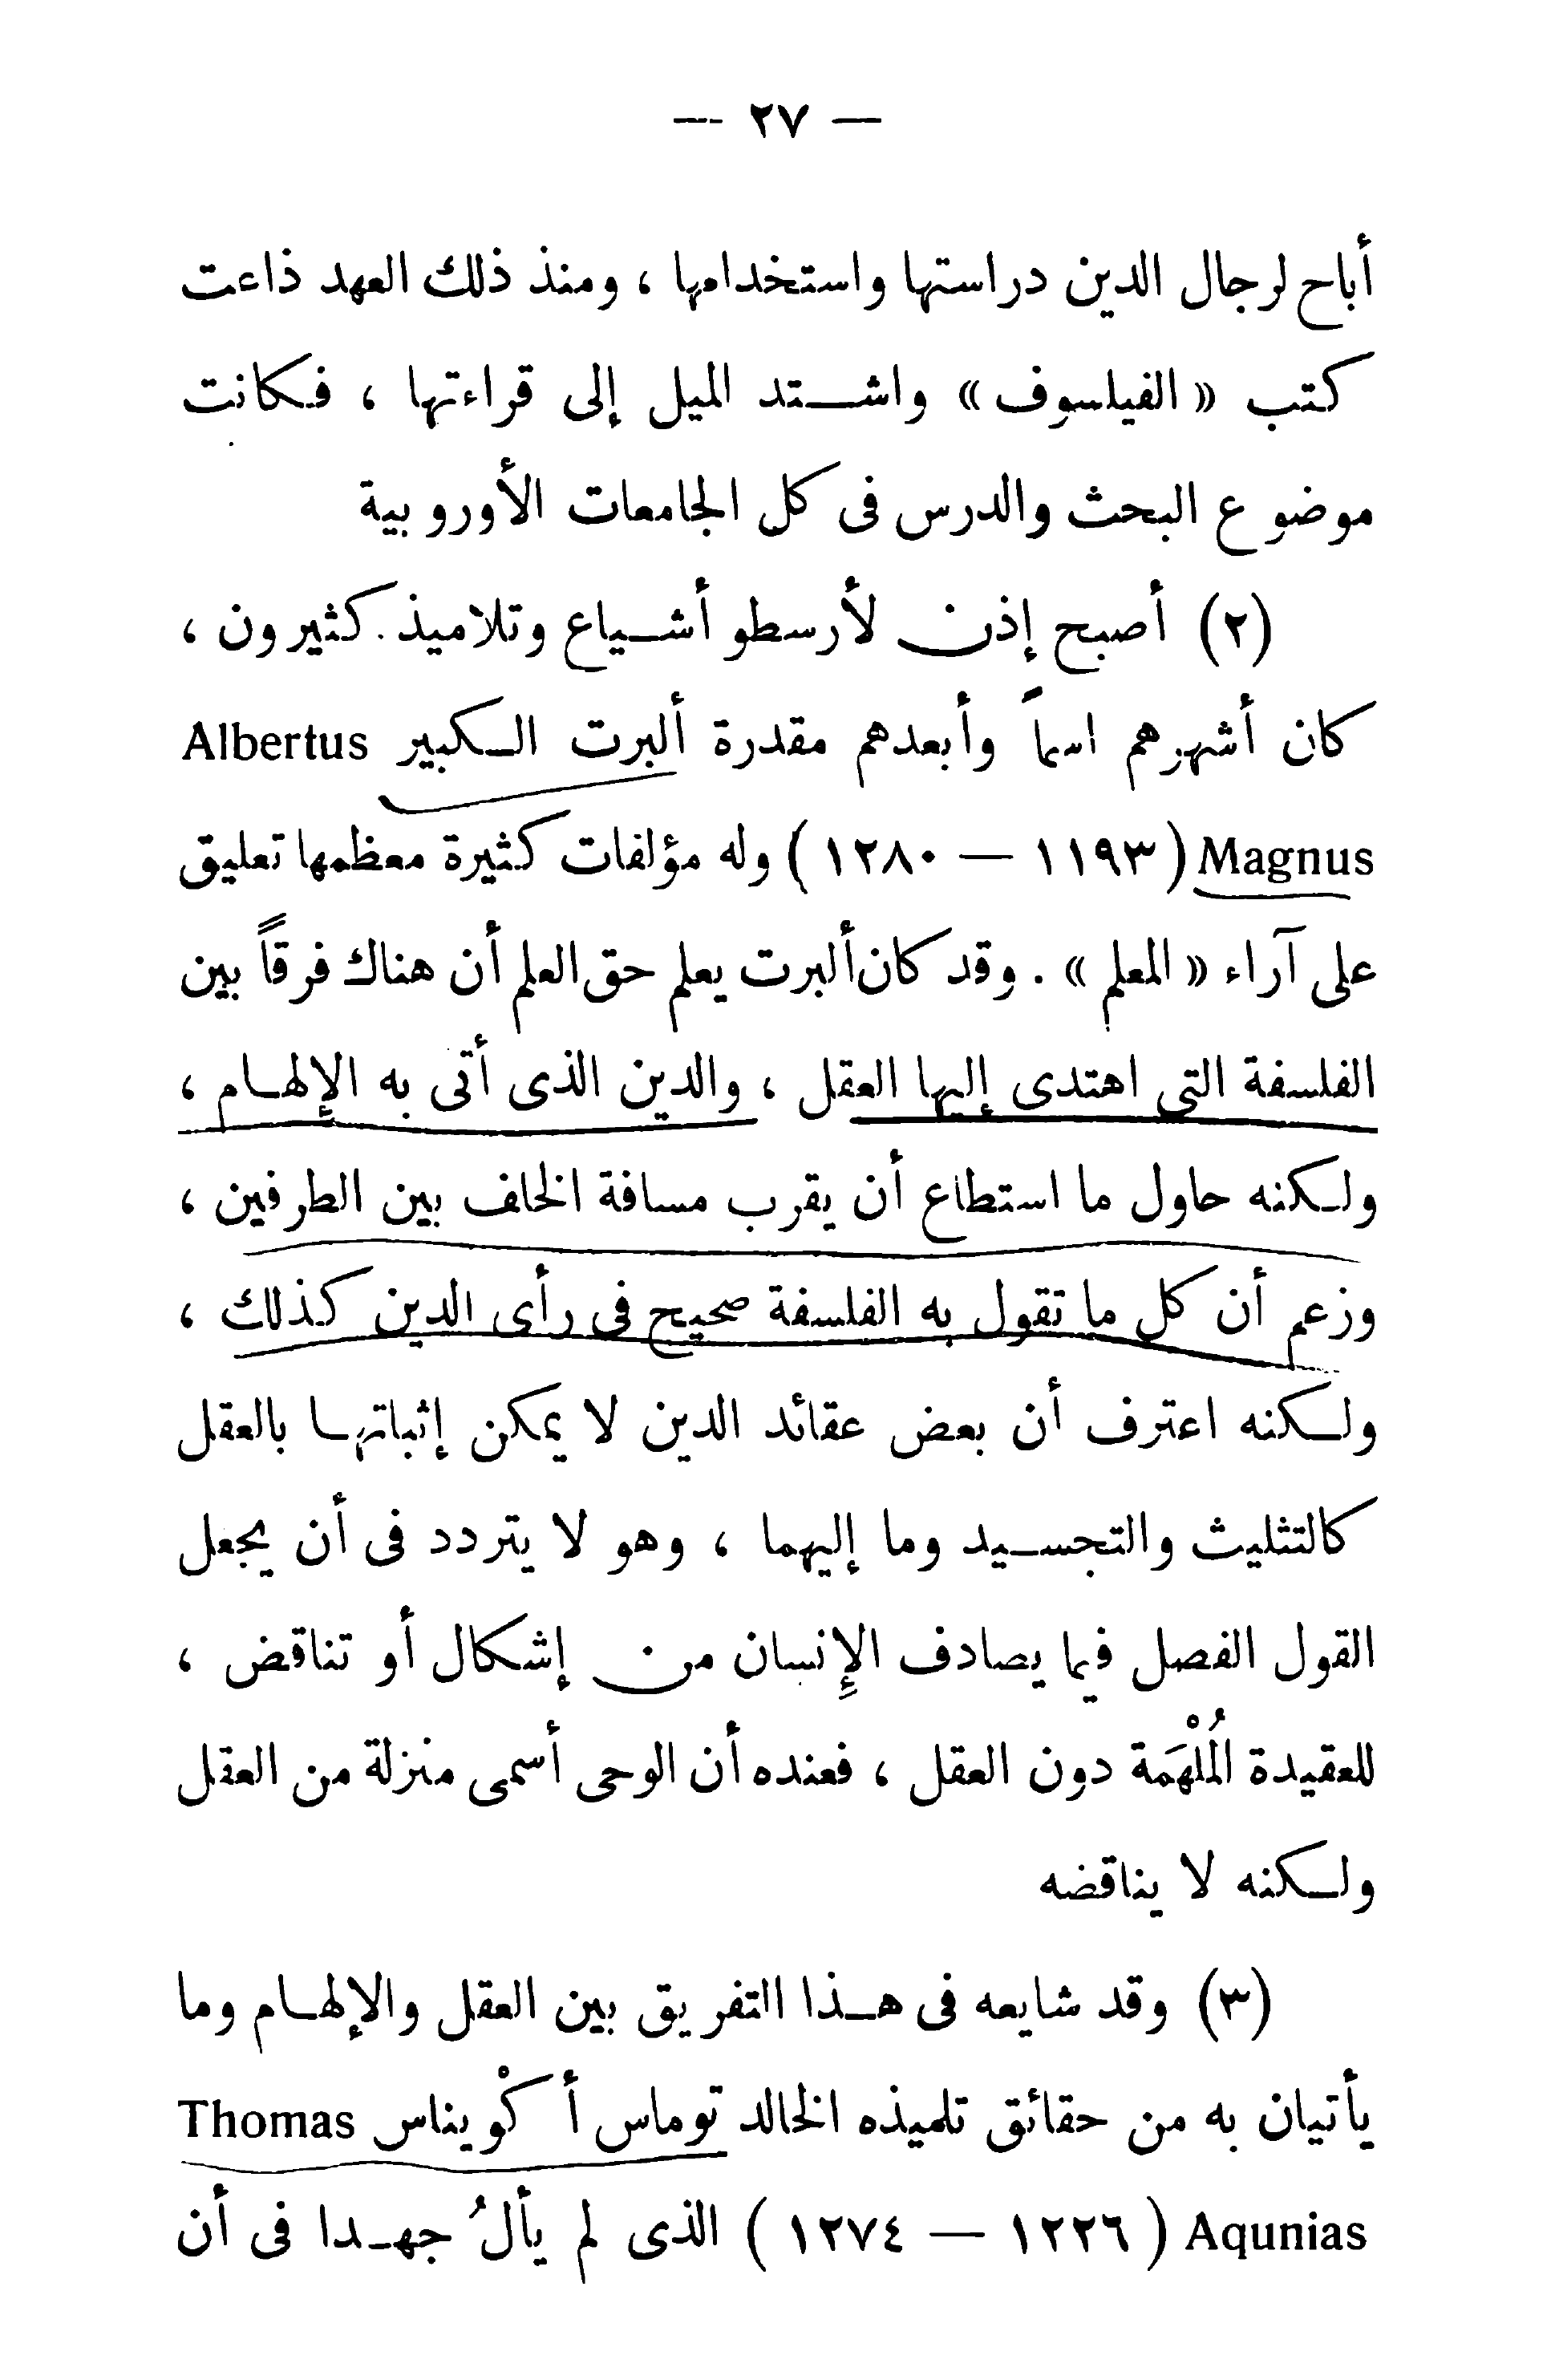 — ٢٧ —
أباح لرجال الدين دراستها واستخدامها ، ومنذ ذلك العهد ذاعت
كتب « الفيلسوف » واشتد الميل إلى قراءتها ، فكانت
موضوع البحث والدرس فى كل الجامعات الأوروبية
(٢) أصبح إذن لأرسطو أشياع وتلاميذ كثيرون ،
كان أشهرهم اسماً وأبعدهم مقدرة ألبرت الكبير Albertus
Magnus ( ١١٩٣ — ١٢٨٠ ) وله مؤلفات كثيرة معظمها تعليق
على آراء « المعلم » . وقد كان ألبرت يعلم حق العلم أن هناك فرقاً بين
الفلسفة التى اهتدى إليها العقل ، والدين الذى أتى به الإلهام ،
ولكنه حاول ما استطاع أن يقرب مسافة الخلف بين الطرفين ،
وزعم أن كل ما تقول به الفلسفة صحيح فى رأى الدين كذلك ،
ولكنه اعترف أن بعض عقائد الدين لا يمكن إثباتها بالعقل
كالتثليث والتجسيد وما إليهما ، وهو لا يتردد فى أن يجعل
القول الفصل فيما يصادف الإنسان من إشكال أو تناقض ،
للعقيدة المُلْهَمَة دون العقل ، فعنده أن الوحى أسمى منزلة من العقل
ولكنه لا يناقضه
(٣) وقد شايعه فى هذا التفريق بين العقل والإلهام وما
يأتيان به من حقائق تلميذه الخالد توماس أكْويناس Thomas
Aqunias ( ١٢٢٦ — ١٢٧٤ ) الذى لم يألُ جهدا فى أن